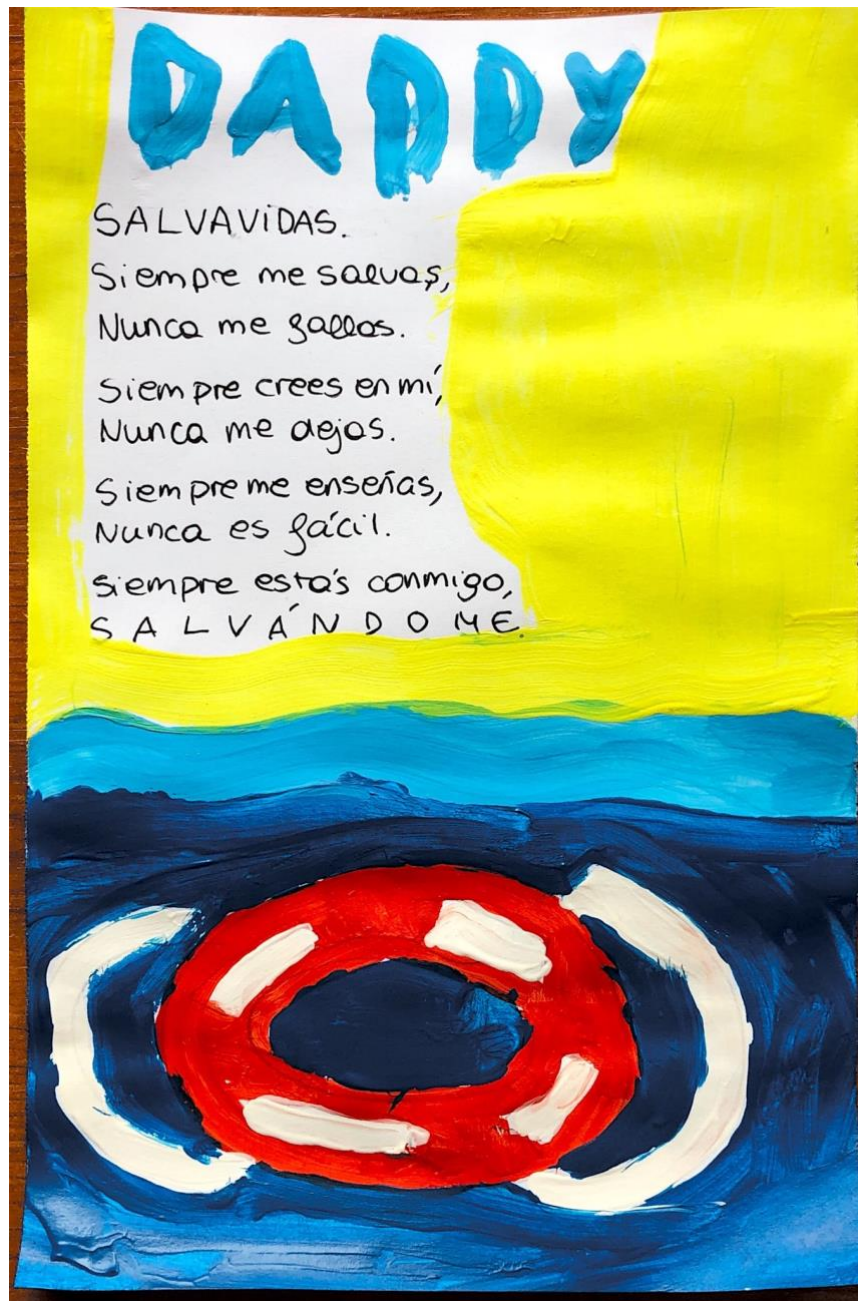 DADDY
SALVAViDAS.
Siempre me salvas,
Nunca me fallas.
Siempre crees en mí,
Nunca me dejas.
Siempre me enseñas,
Nunca es fácil.
Siempre estás conmigo,
SALVÁNDOME.